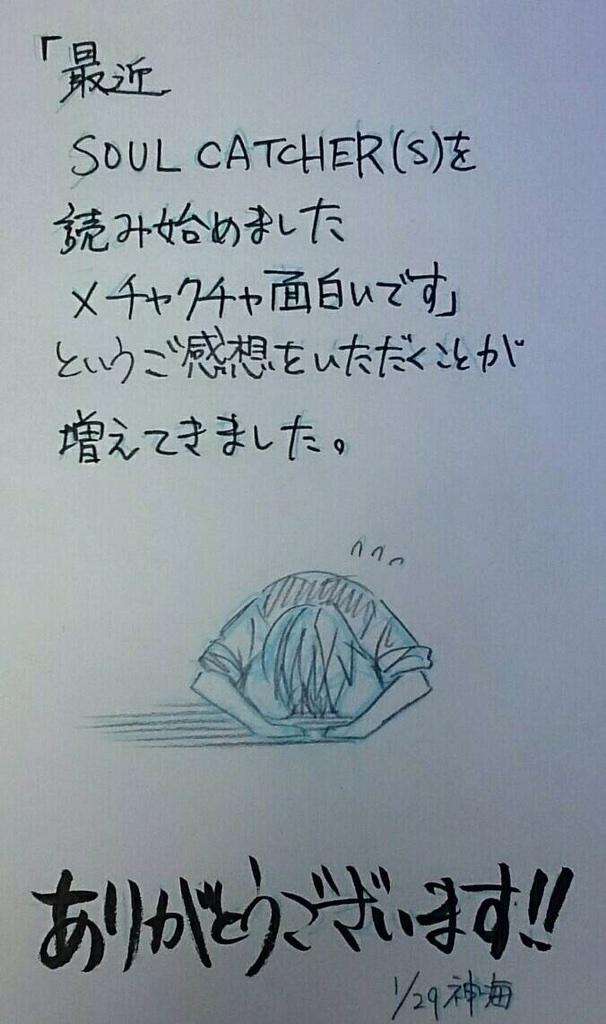 「最近
SOUL CATCHER(S)を
読み始めました
メチャクチャ面白いです」
というご感想をいただくことが
増えてきました。
ありがとうございます!!
1/29 神海